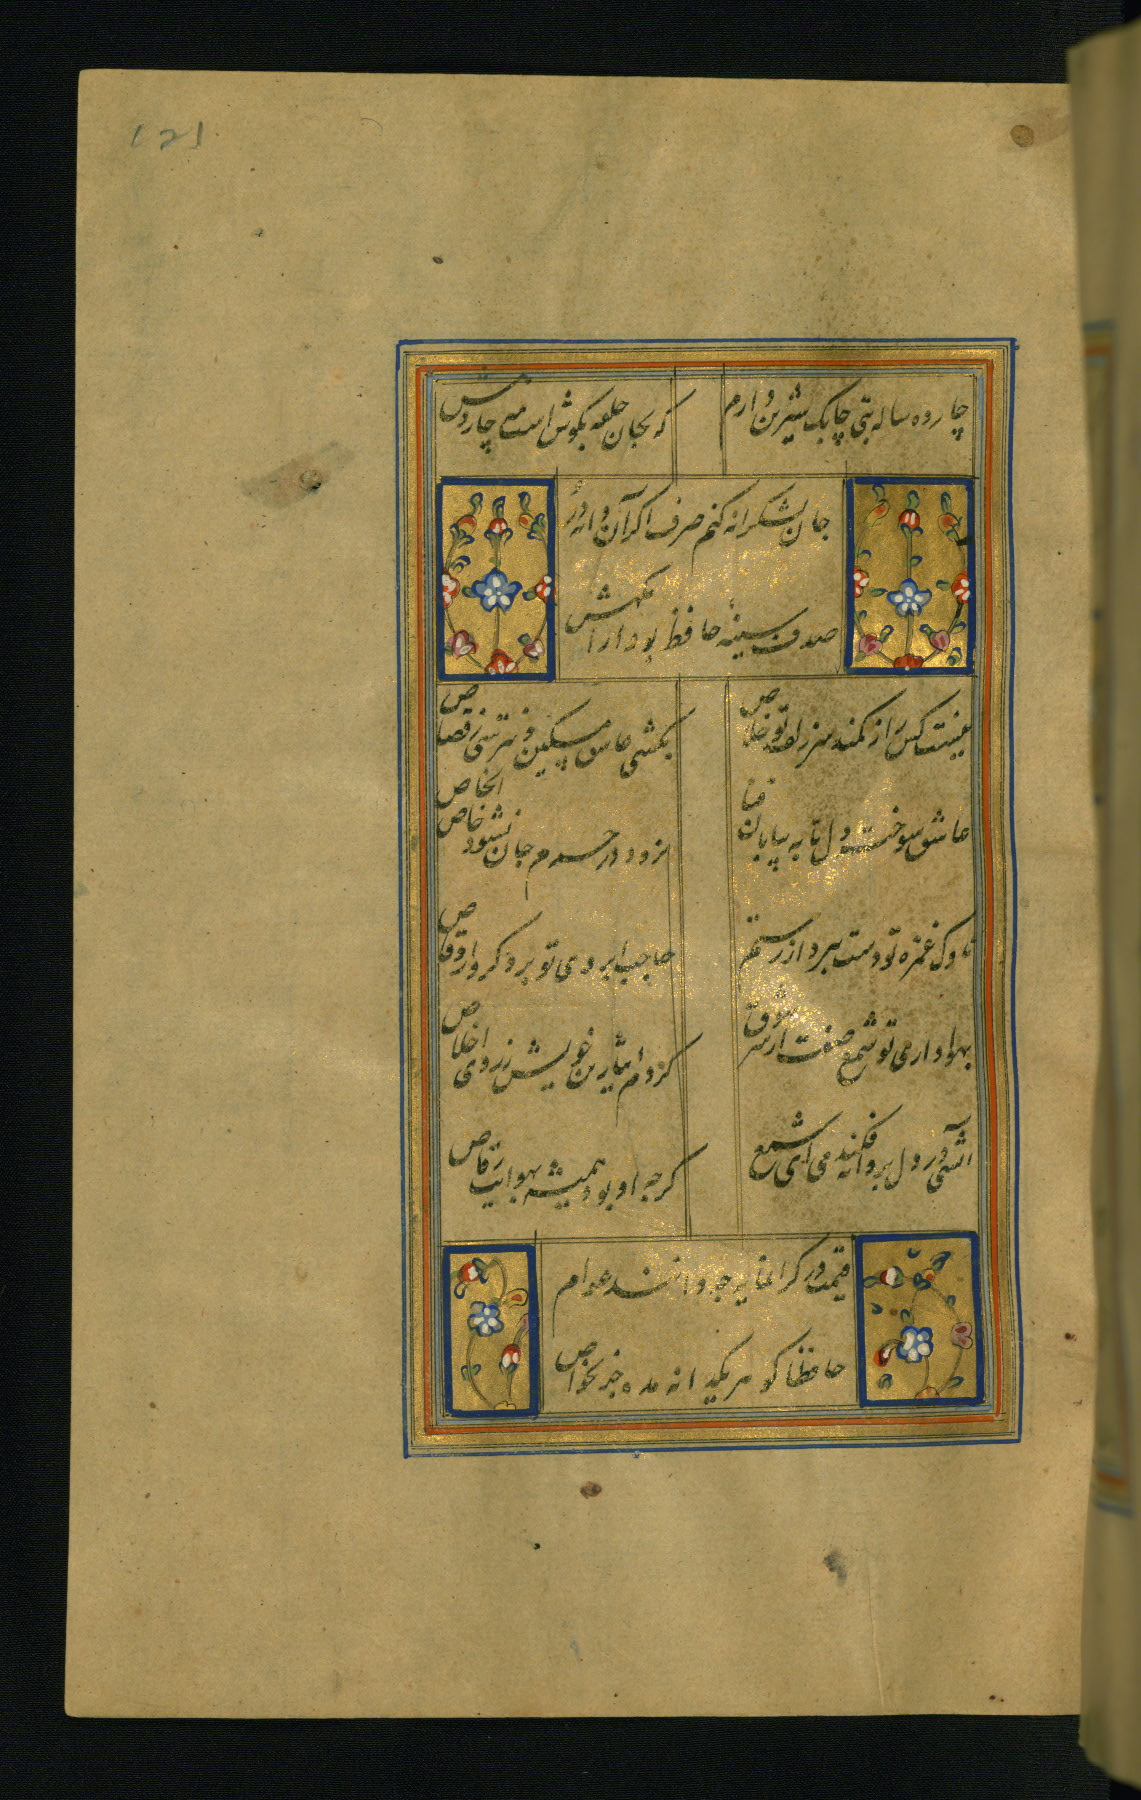 121
چارده ساله بتی چابک شیرین دارم
که بجان حلقه بگوش است مه چاردهش
جان بشکرانه کنم صرف اگر آن دانه در
صدف سینه حافظ بود آرامگهش
نیست کس را ز کمند سر زلف تو خلاص
بکشی عاشق مسکین و نترسی ز قصاص
عاشق سوخته دل تا به بیابان فنا
نرود در حرم جان نشود خاص الخاص
ناوک غمزه تو دست ببرد از رستم
حاجب ابروی تو برد گرو از وقاص
بهواداری تو شمع صفت از سر شوق
کردم ایثار تن خویش ز روی اخلاص
آتشی در دل پروانه فکندی ای شمع
گرچه او بود همیشه بهوایت رقاص
قیمت در گرانمایه چه دانند عوام
حافظا گوهر یکدانه مده جز بخواص